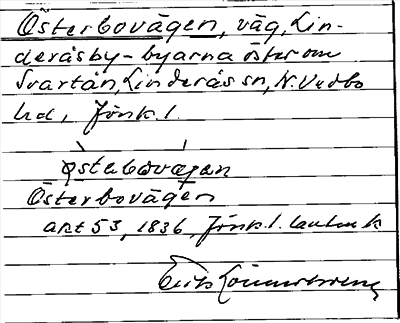 Österbovägen, väg, Lin-
deråsby - byarna öster om
Svartån, Linderås sn, N. Vedbo
hd, Jönk. l.
østebovægen
Österbovägen
akt 53, 1836, Jönk. l. lantm.k
Erik